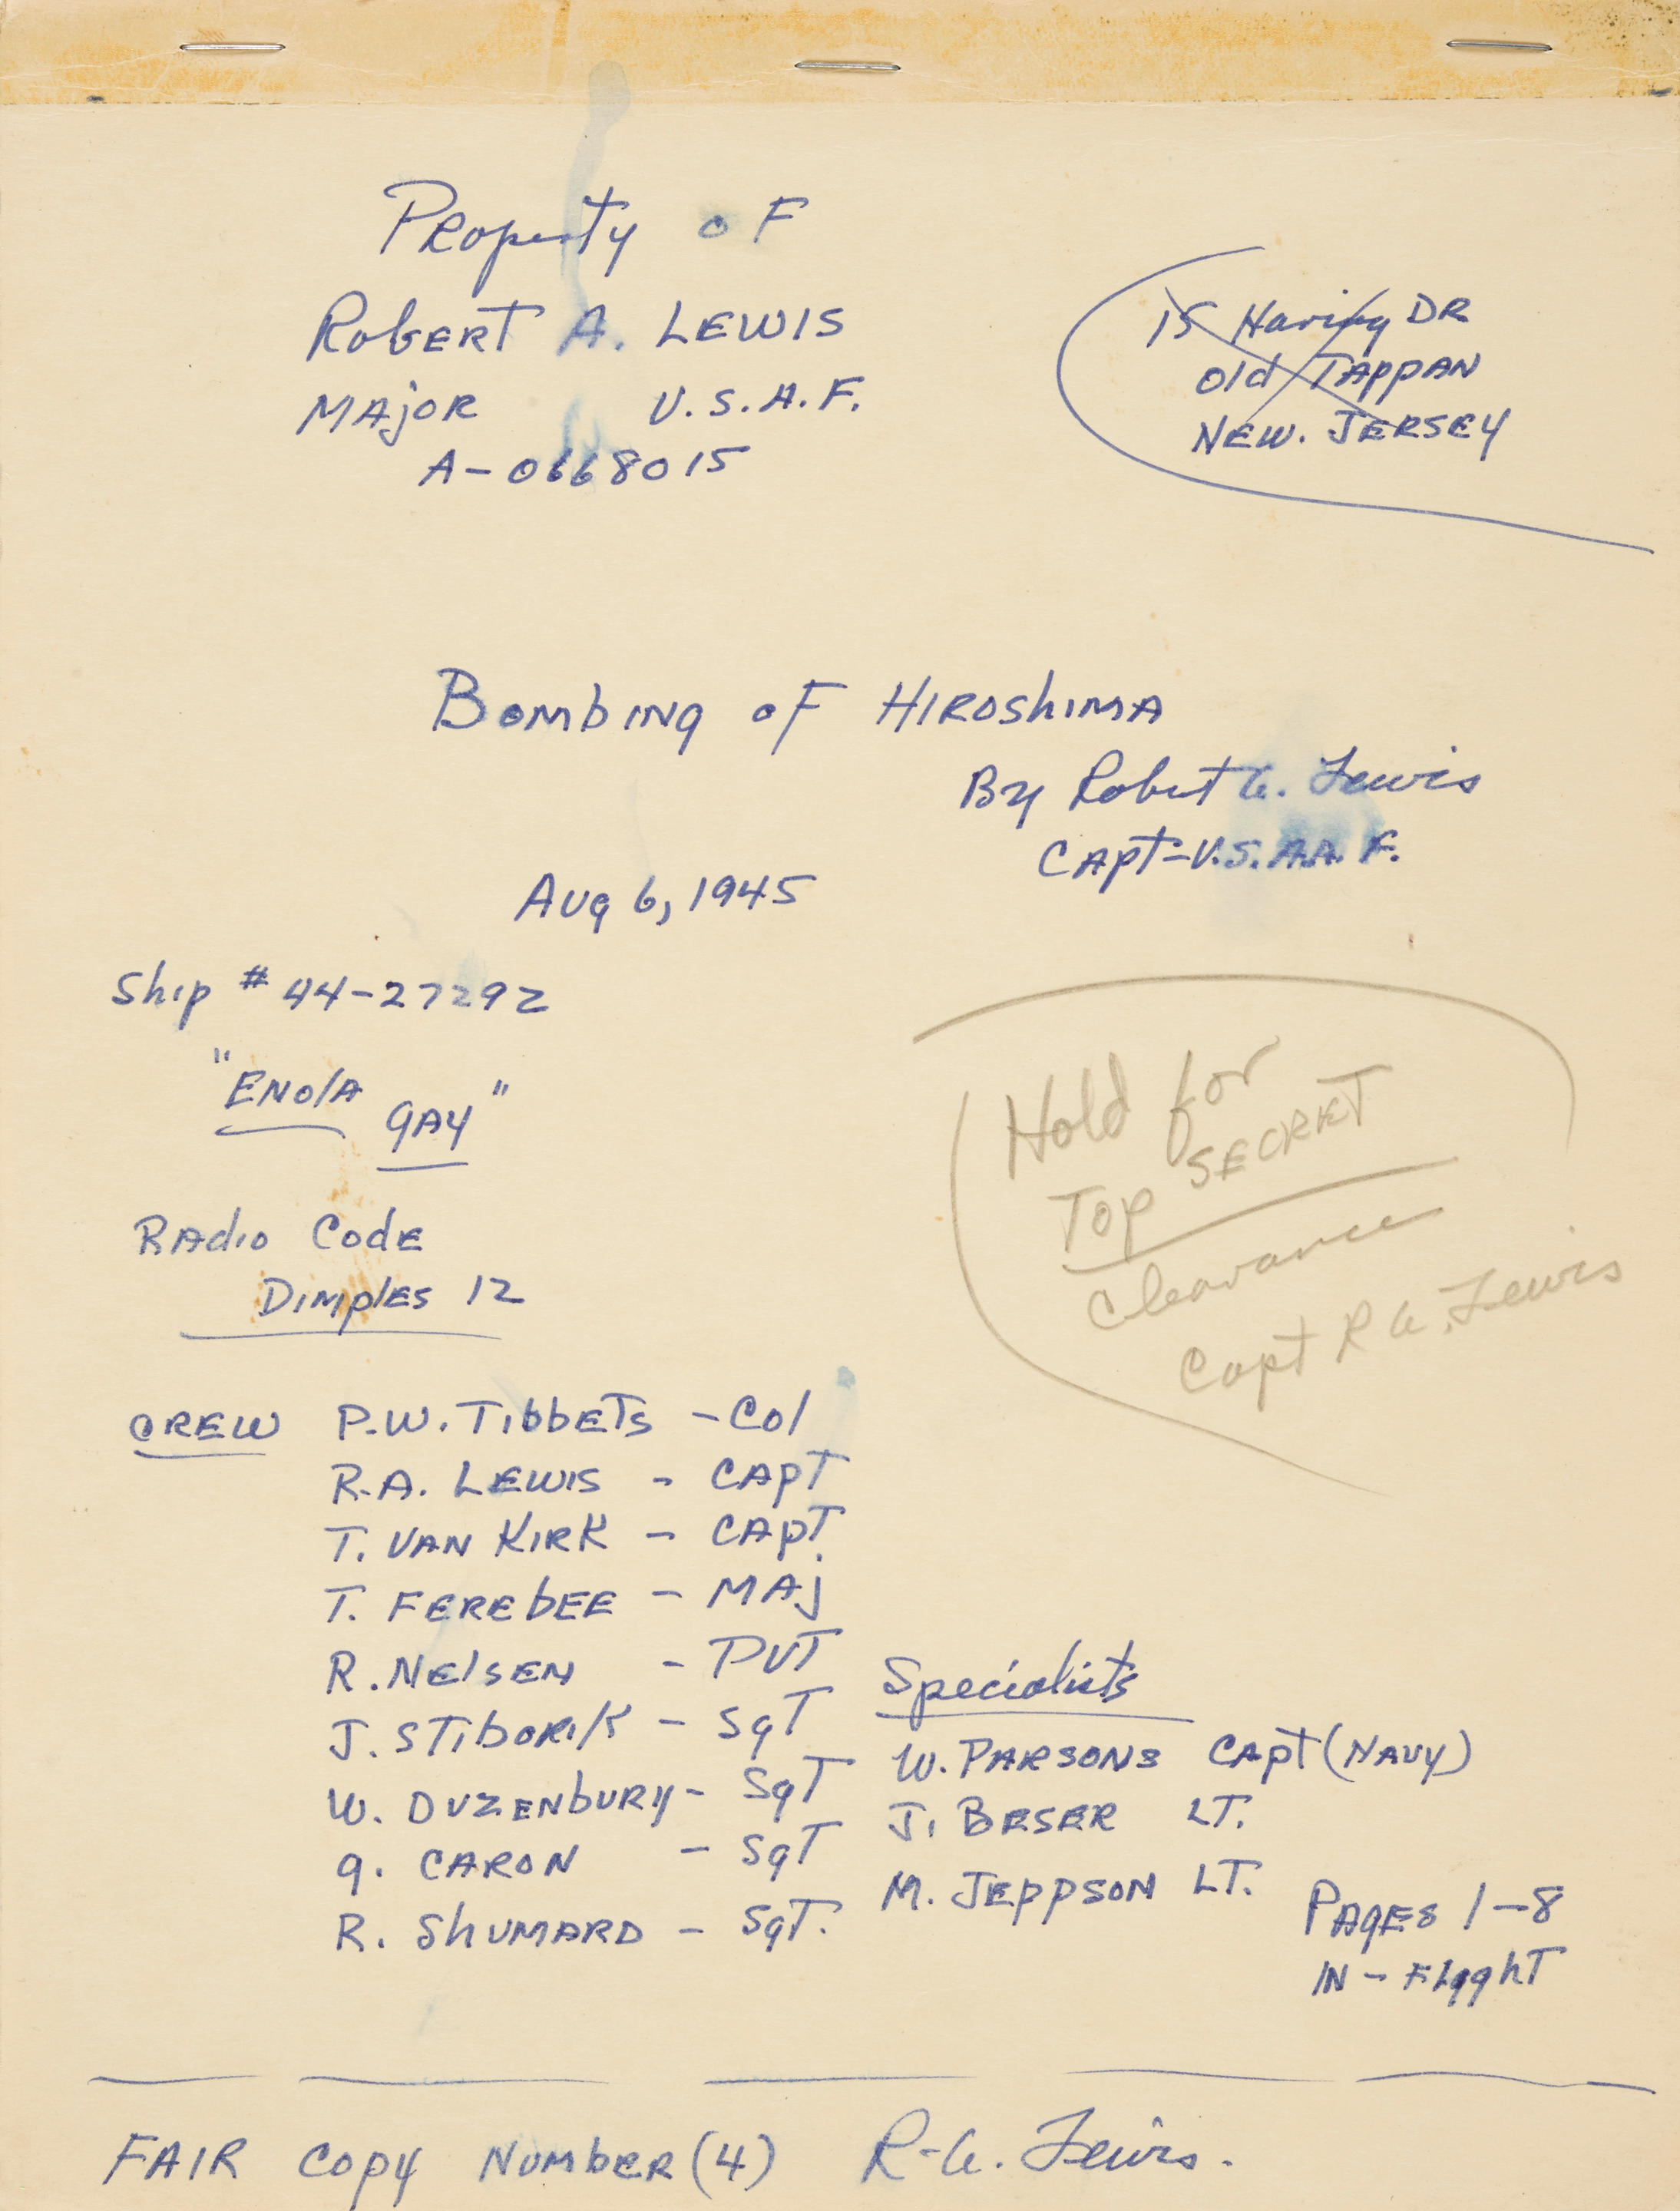 Property of
Robert A. Lewis
Major U.S.A.F.
A-0668015
15 Haring DR
Old Tappan
New. Jersey
Bombing of Hiroshima
By Robert A. Lewis
Capt-U.S.A.A.F.
Aug 6, 1945
Ship # 44-27292
"Enola Gay"
Radio Code
Dimples 12
Hold for
Top Secret
Clearance
Capt R A. Lewis
Crew P.W. Tibbets - Col
R.A. Lewis - Capt
T. Van Kirk - Capt.
T. Ferebee - Maj
R. Nelsen - Pvt
J. Stiborik - Sgt
W. Duzenbury - Sgt
G. Caron - Sgt
R. Shumard - Sgt.
Specialists
W. Parsons Capt (Navy)
J. Beser Lt.
M. Jeppson Lt.
Pages 1-8
In - Flight
Fair Copy Number (4) R-A. Lewis.